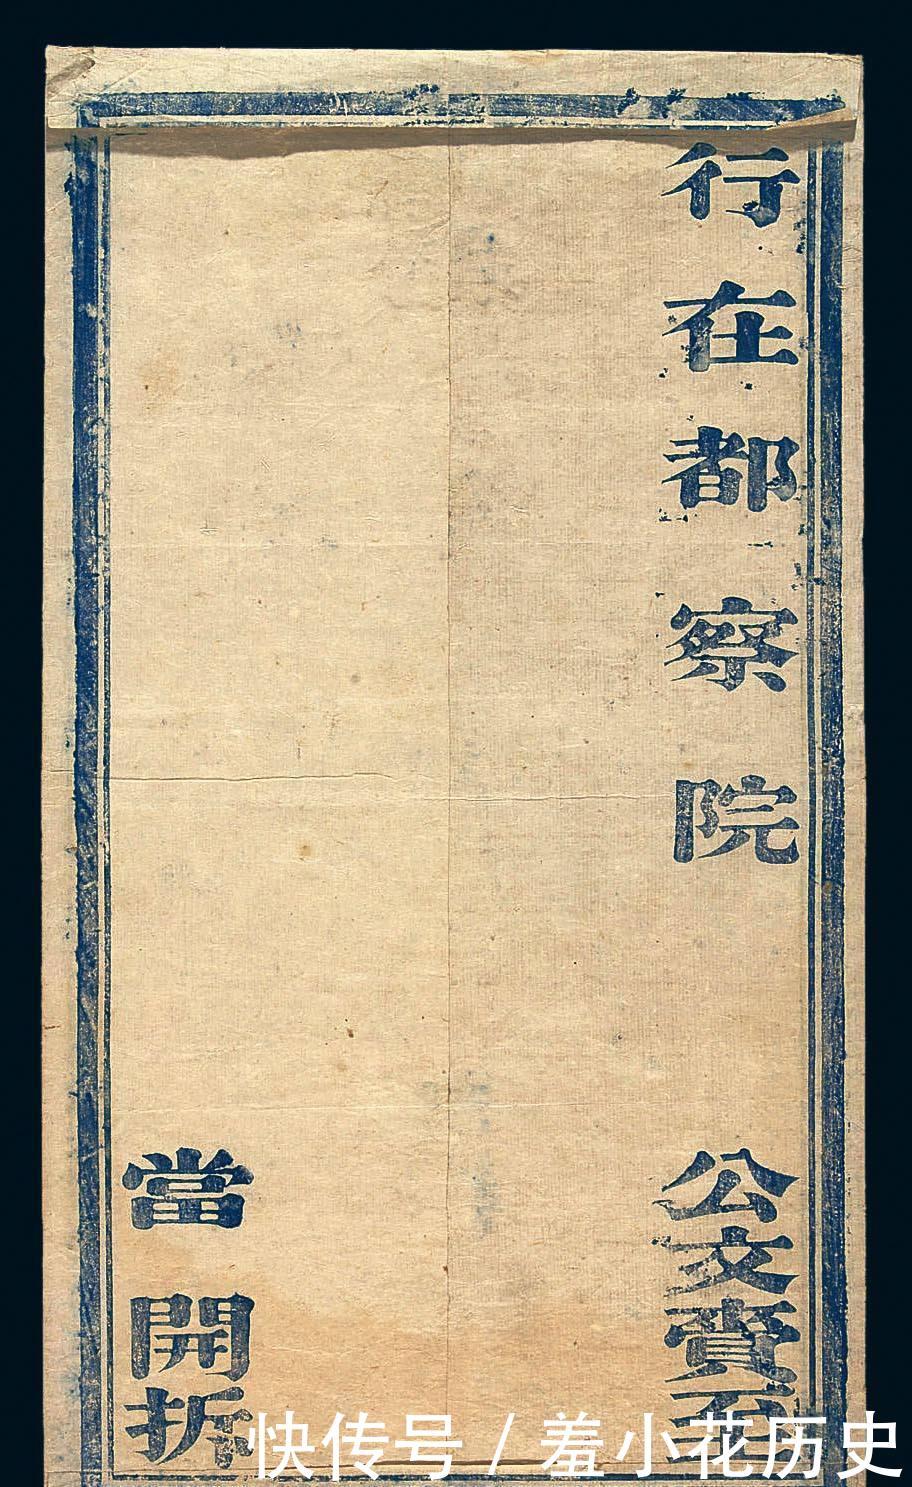 行在都察院 公文賫至
當開折
快传号 / 羞小花历史